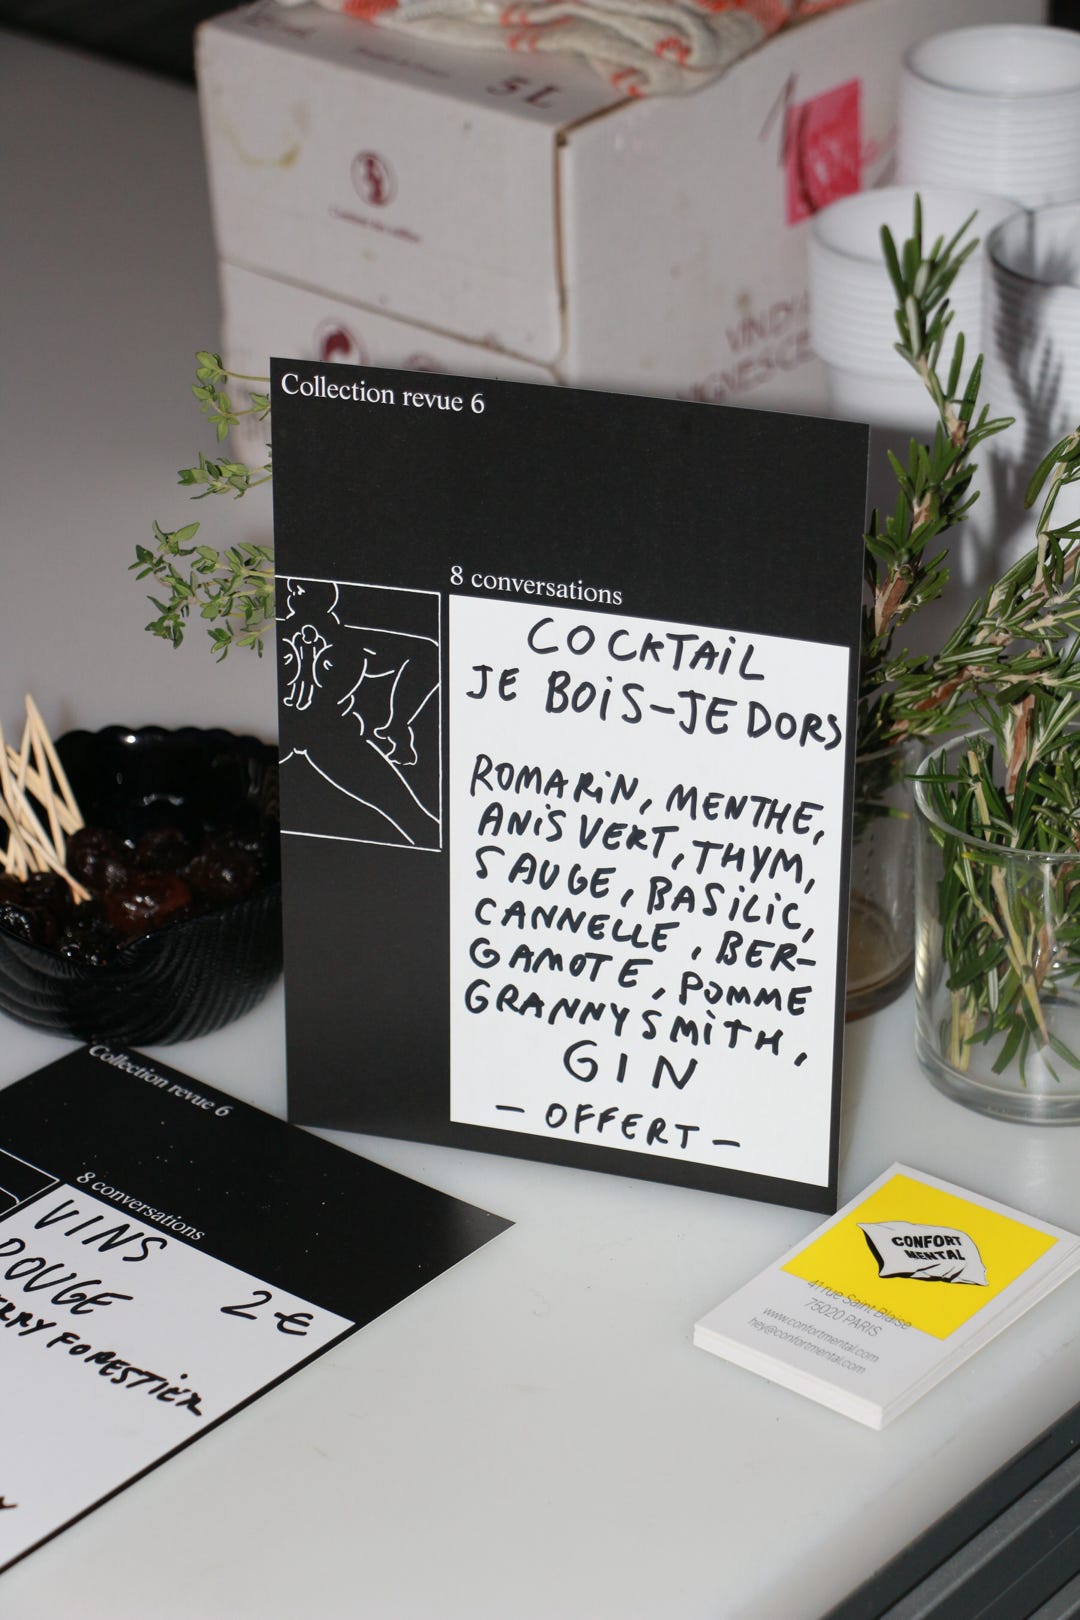 5L
Collection revue 6
8 conversations
COCKTAiL
JE BOiS-JE DORS
ROMARiN, MENTHE,
ANiS VERT, THYM,
SAUGE, BASiLiC,
CANNELLE, BER-
GAMOTE, POMME
GRANNY SMiTH,
GIN
- OFFERT -
Collection revue 6
8 conversations
VINS
ROUGE 2€
FORESTiER
CONFORT
MENTAL
41 rue Saint Blaise
75020 PARIS
www.confortmental.com
hey@confortmental.com